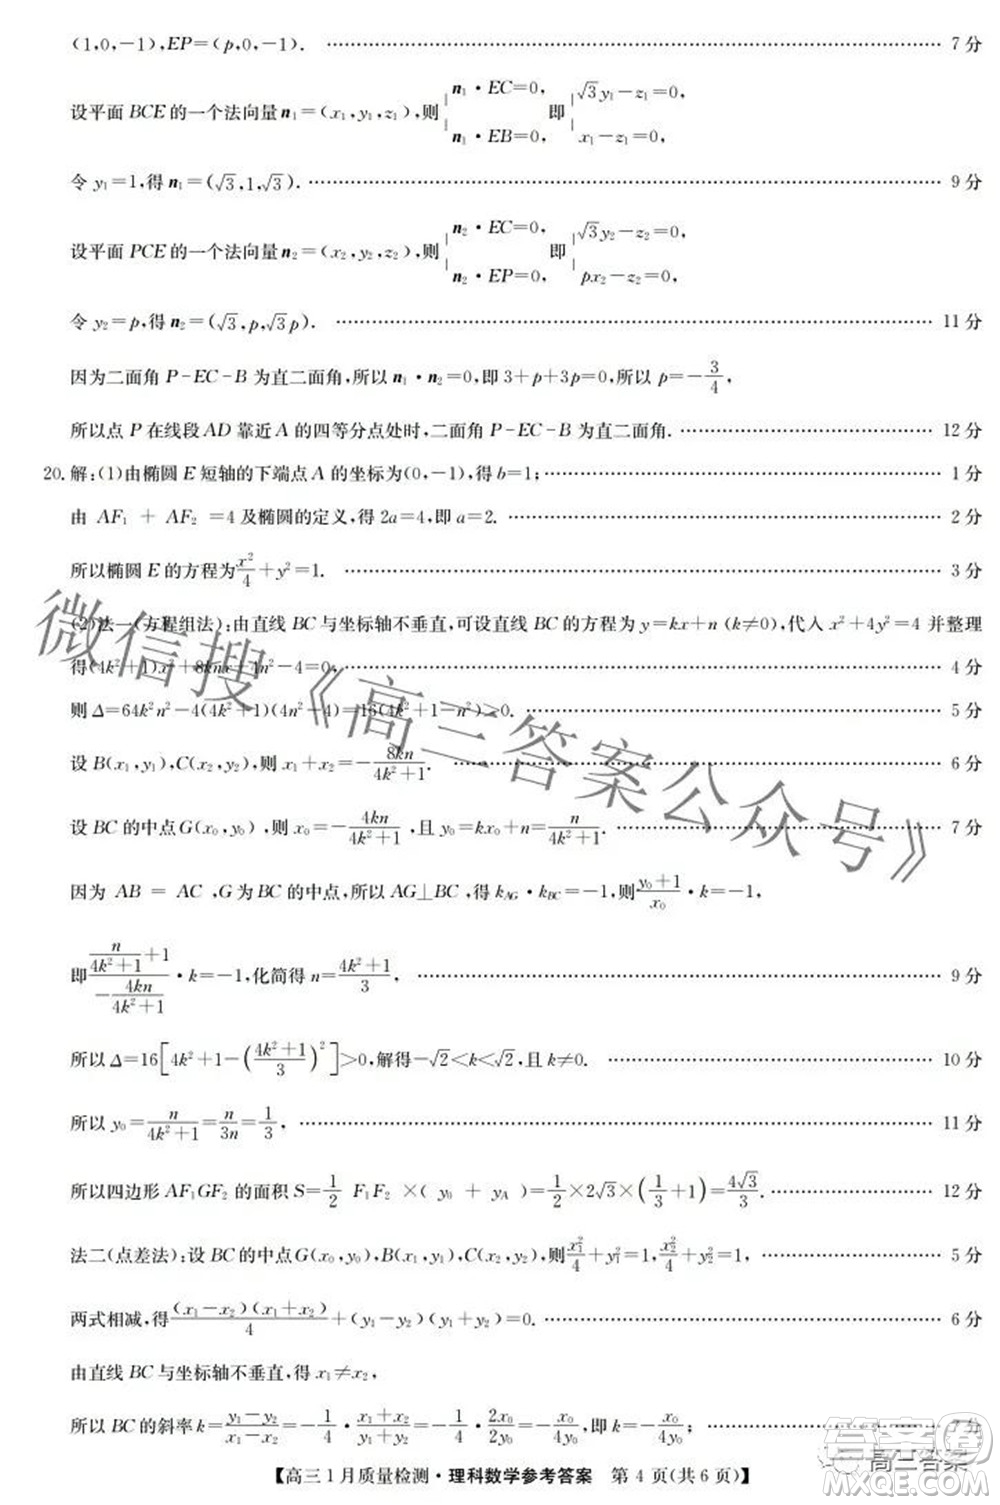 (1,0,-1),EP=(p,0,-1). 7分
设平面 BCE 的一个法向量 n₁=(x₁,y₁,z₁),则 n₁·EC=0, n₁·EB=0, 即 √3y₁-z₁=0, x₁-z₁=0,
令 y₁=1,得 n₁=(√3,1,√3). 9分
设平面 PCE 的一个法向量 n₂=(x₂,y₂,z₂),则 n₂·EC=0, n₂·EP=0, 即 √3y₂-z₂=0, px₂-z₂=0,
令 y₂=p,得 n₂=(√3,p,√3p). 11分
因为二面角 P-EC-B 为直二面角,所以 n₁·n₂=0,即 3+p+3p=0,所以 p=-3/4,
所以点 P 在线段 AD 靠近 A 的四等分点处时,二面角 P-EC-B 为直二面角. 12分
20.解:(1)由椭圆 E 短轴的下端点 A 的坐标为(0,-1),得 b=1; 1分
由 AF₁ + AF₂ =4 及椭圆的定义,得 2a=4,即 a=2. 2分
所以椭圆 E 的方程为x²/4+y²=1. 3分
(2)法一(方程组法):由直线 BC 与坐标轴不垂直,可设直线 BC 的方程为 y=kx+n (k≠0),代入 x²+4y²=4 并整理
得(4k²+1)x²+8knx+4n²-4=0, 4分
则 Δ=64k²n²-4(4k²+1)(4n²-4)=16(4k²+1-n²)>0. 5分
设 B(x₁,y₁),C(x₂,y₂),则 x₁+x₂=-8kn/(4k²+1). 6分
设 BC 的中点G(x₀,y₀),则 x₀=-4kn/(4k²+1),且 y₀=kx₀+n=n/(4k²+1). 7分
因为 AB = AC ,G 为 BC 的中点,所以 AG⊥BC,得 k_AG·k_BC=-1,则(y₀+1)/x₀·k=-1,
即(n/(4k²+1)+1)/(-4kn/(4k²+1))·k=-1,化简得 n=(4k²+1)/3, 9分
所以 Δ=16[4k²+1-((4k²+1)/3)²]>0,解得-√2<k<√2,且 k≠0. 10分
所以 y₀=n/(4k²+1)=n/3n=1/3, 11分
所以四边形 AF₁GF₂ 的面积 S=1/2 F₁F₂ ×( y₀ + y_A )=1/2×2√3×(1/3+1)=4√3/3. 12分
法二(点差法):设 BC 的中点G(x₀,y₀),B(x₁,y₁),C(x₂,y₂),则x₁²/4+y₁²=1,x₂²/4+y₂²=1, 5分
两式相减,得(x₁-x₂)(x₁+x₂)/4+(y₁-y₂)(y₁+y₂)=0. 6分
由直线 BC 与坐标轴不垂直,得 x₁≠x₂,
所以 BC 的斜率 k=(y₁-y₂)/(x₁-x₂)=-1/4·(x₁+x₂)/(y₁+y₂)=-1/4·2x₀/2y₀=-x₀/4y₀,即 k=-x₀/4y₀; 7分
【高三1月质量检测·理科数学参考答案 第4页(共6页)】
微信搜《高三答案公众号》
高三答案
答案圈
MXQE.COM